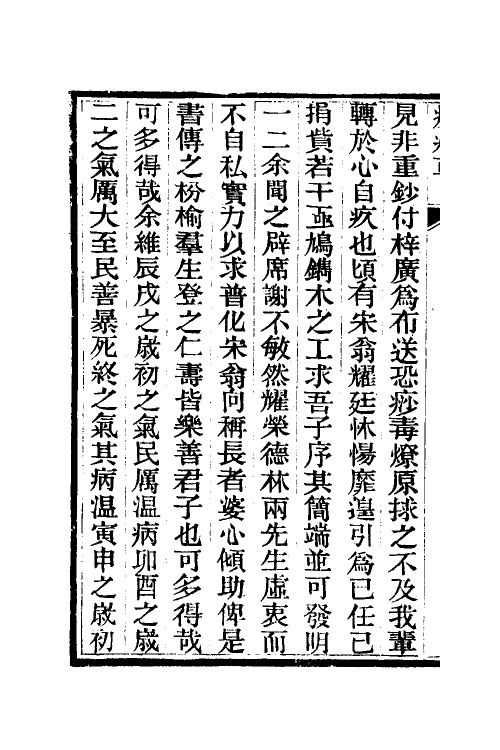 見非重鈔付梓廣爲布送恐痧毒燎原捄之不及我輩
轉於心自疚也頃有宋翁耀廷怵惕靡遑引爲已任已
捐貲若干亟鳩鐫木之工求吾子序其簡端並可發明
一二余聞之辟席謝不敏然耀榮德林兩先生虛衷而
不自私實力以求普化宋翁向稱長者婆心傾助俾是
書傳之枌榆羣生登之仁壽皆樂善君子也可多得哉
可多得哉余維辰戌之歲初之氣民厲溫病卯酉之歲
二之氣厲大至民善暴死終之氣其病溫寅申之歲初